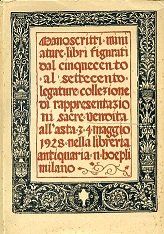 Manoscritti · mini
ature · libri figurati
dal cinquecento
al settecento
legature · collezione
di rappresentazio
ni sacre · vendita
all'asta · 3 · 4 · maggio
1928 · nella libreria
antiquaria · u · hoepli
milano